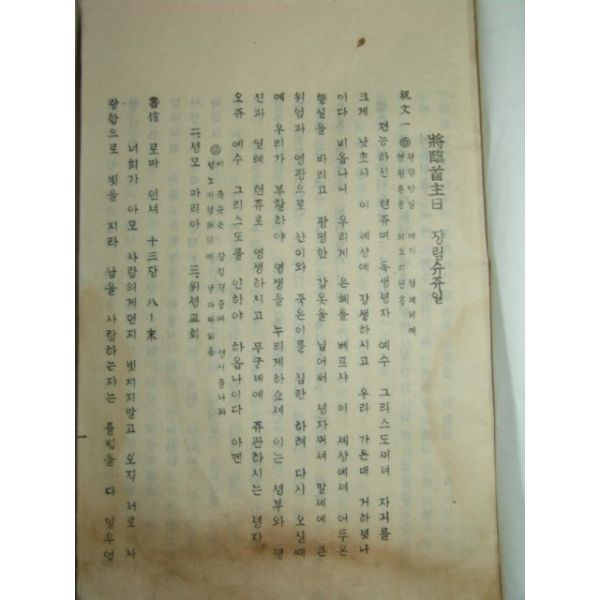 將臨首主日 쟝림슈쥬일
祝文一 ◎
젼능하신 텬쥬여 독생녕자 예수 그리스도끠셔 자긔를
크게 낫초샤 이 세상에 강생하시고 우리 가온대 거하셧나
이다 비옵나니 우리게 은혜를 베프샤 이 세상에셔 어두온
행실을 바리고 광명한 갑옷을 닙어써 녕자끠셔 말세에 큰
위엄과 영광으로 산이와 죽은이를 심판 하려 다시 오실때
에 우리가 부활하야 영생을 누리게하쇼셔 이는 녕부와 녕
신과 일톄 텬쥬로 영생하시고 무궁세에 쥬관하시는 녕자
오쥬 예수 그리스도를 인하야 하옵나이다 아멘
◎ 이 축문은
二, 셩모 마리아 三, 위셩교회
書信 로마 인셔 十三장 八ㅣ末
너희가 아모 사람의게던지 빗지지말고 오직 서로 사
랑함으로 빗을 지라 남을 사랑하는자는 률법을 다 일우엇